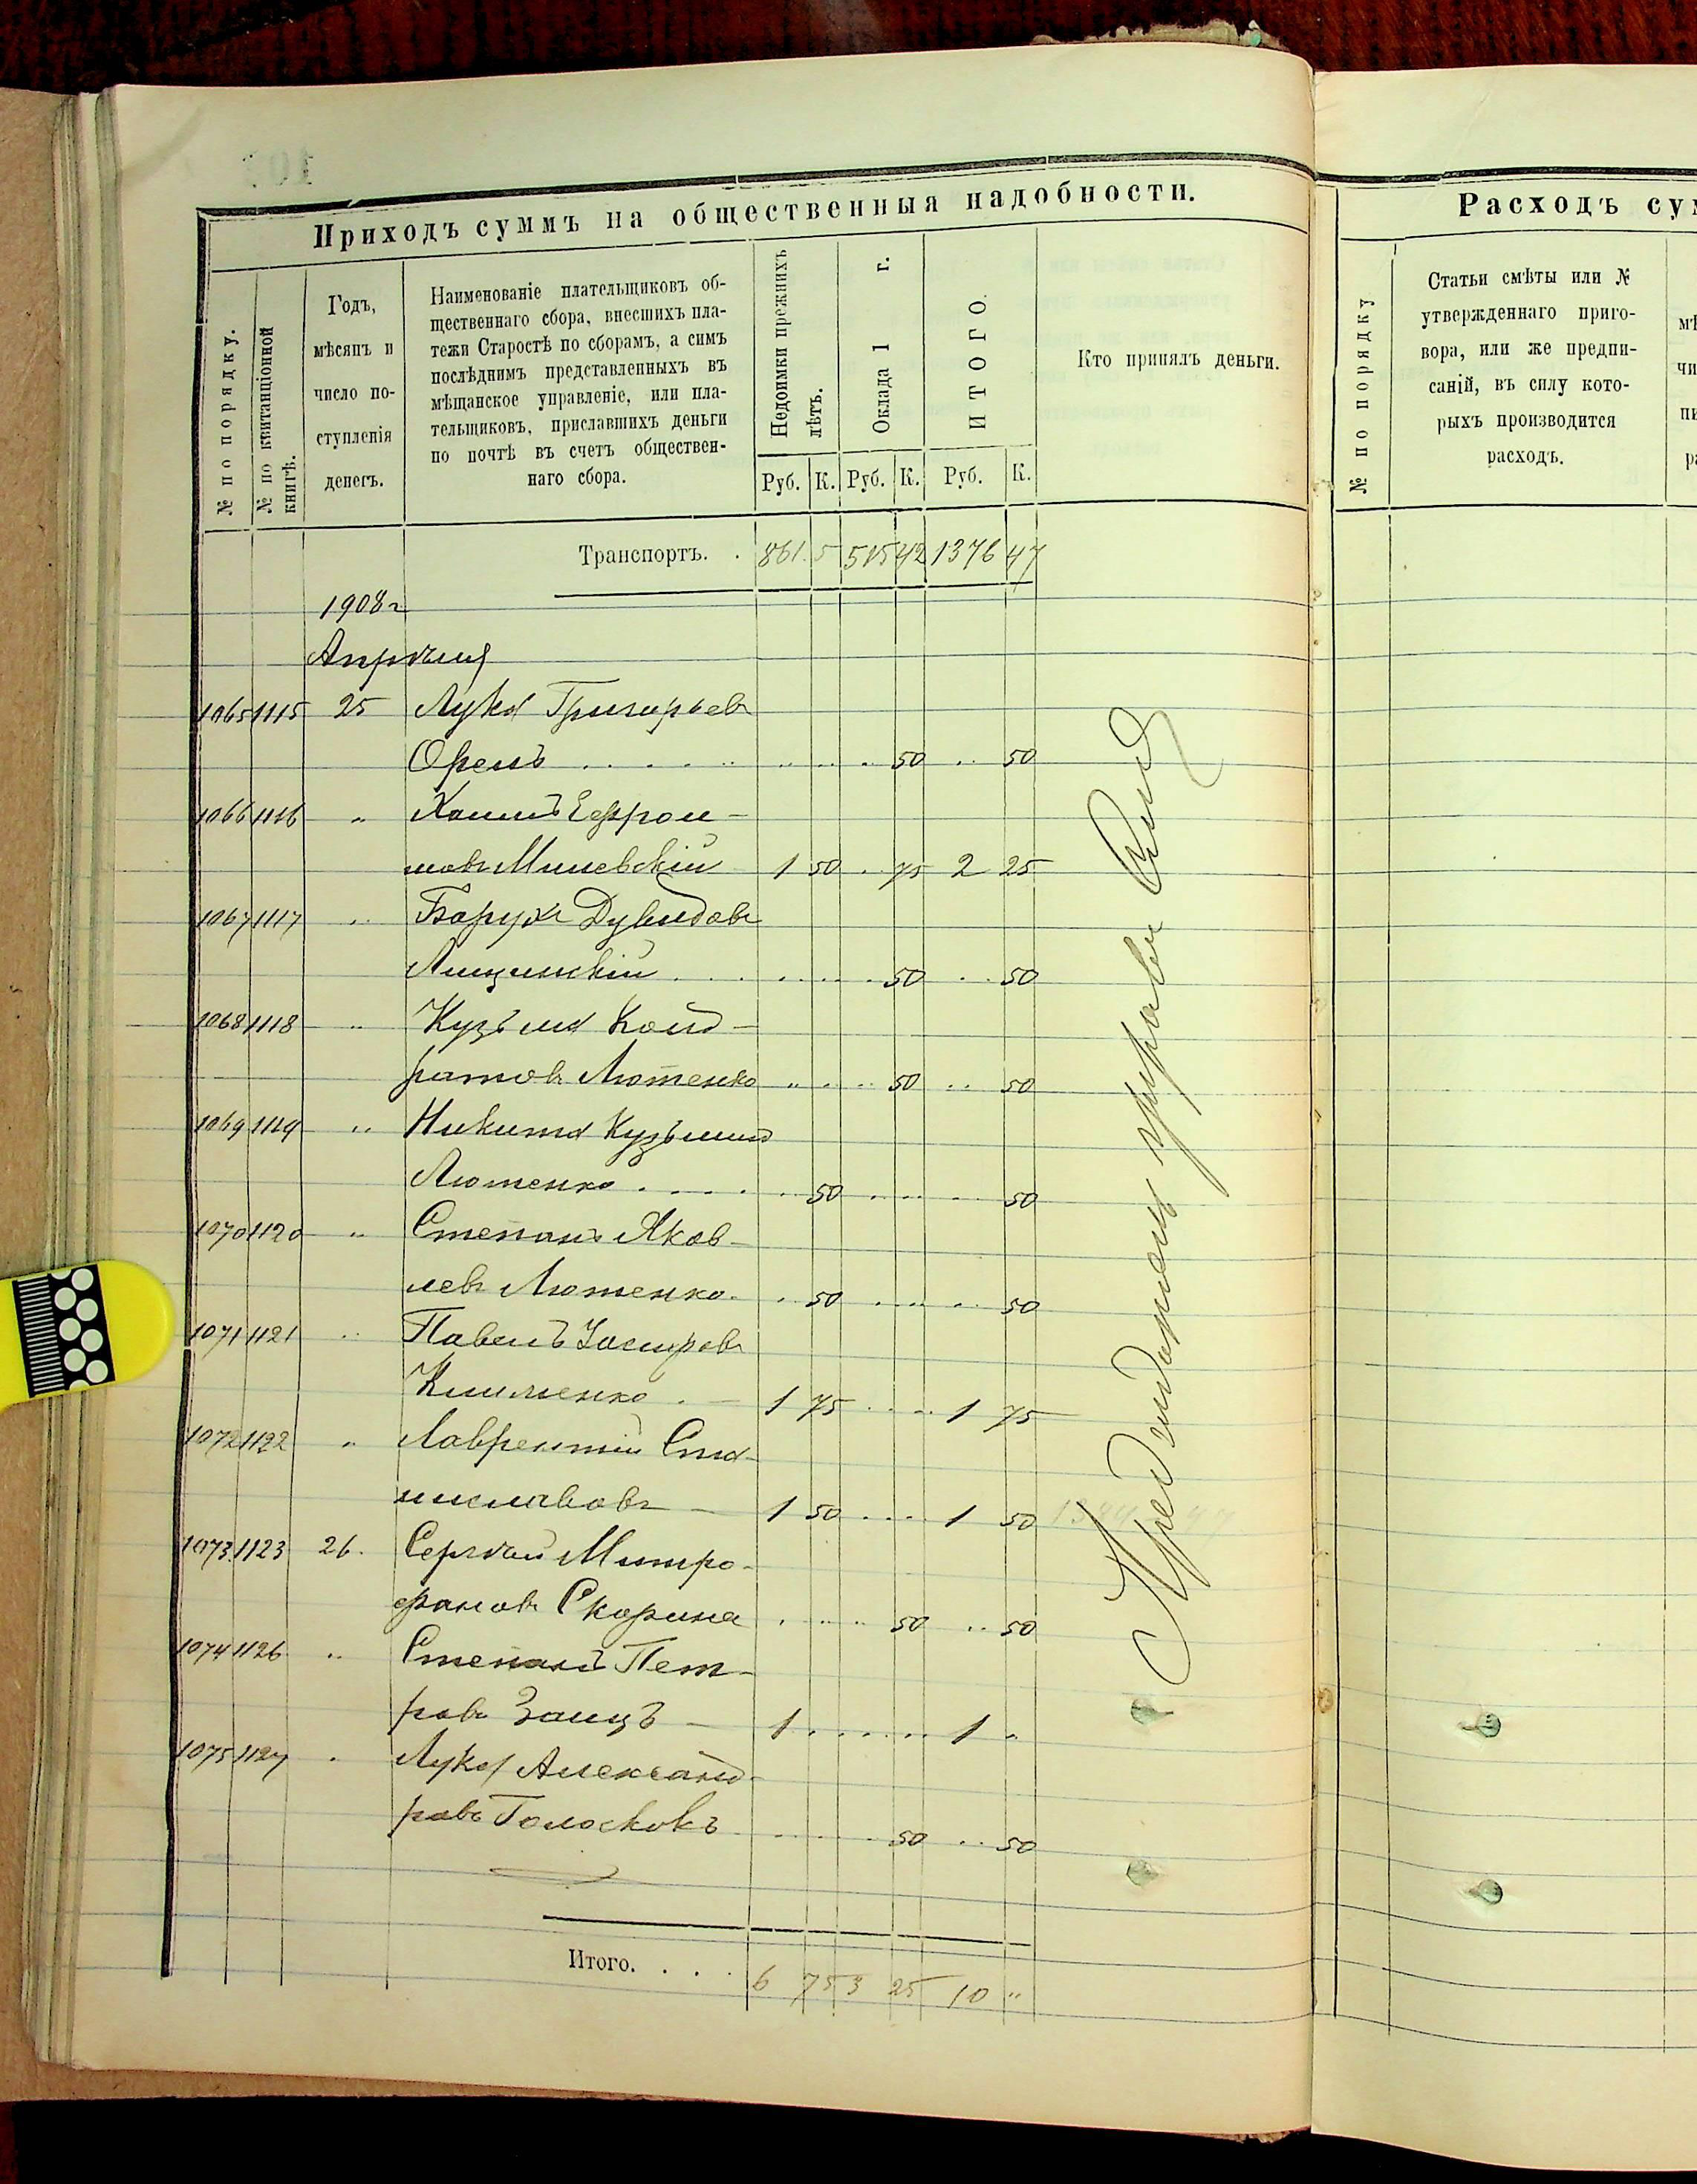 Приходъ суммъ на общественныя надобности.
№ по порядку.
№ по квитанціонной книгѣ.
Годъ,
мѣсяцъ и
число по-
ступленія
денегъ.
Наименованіе плательщиковъ об-
щественнаго сбора, внесшихъ пла-
тежи Старостѣ по сборамъ, а симъ
послѣднимъ представленныхъ въ
мѣщанское управленіе, или пла-
тельщиковъ, приславшихъ деньги
по почтѣ въ счетъ обществен-
наго сбора.
Недоимки прежнихъ лѣтъ.
Оклада 1 г.
ИТОГО.
Руб. К. Руб. К. Руб. К.
Кто принялъ деньги.
Транспортъ. . 861 5 515 42 1376 47
1908 г
Апрѣля
1065 1115 25 Лука Григорьевъ
Орелъ . . . . . 50 .. 50
1066 1116 „ Хаимъ Ефрои-
мовъ Милевскій 1 50 . 75 2 25
1067 1117 „ Барухъ Дувидовъ
Лищинскій . . . . 50 . . 50
1068 1118 „ Кузьма Конд-
ратовъ Лютенко „ . . . 50 .. 50
1069 1119 „ Никита Кузьминъ
Лютенко . . . . 50 . . . . 50
1070 1120 „ Степанъ Яков-
левъ Лютенко . . 50 . . . . 50
1071 1121 „ Павелъ
Клименко . — 1 75 . . . . 1 75
1072 1122 „ Лаврентій Ста-
ниславовъ — 1 50 . . . . 1 50
1073 1123 26. Сергѣй Митро-
фановъ Скорина . . . 50 .. 50
1074 1126 „ Степанъ Пет-
ровъ Заицъ — 1 . . . . . 1 „
1075 1127 „ Лука Александ-
ровъ Голоскокъ . . . . 50 .. 50
Итого. . . . 6 75 3 25 10 „
Предсѣдатель управы
Расходъ сум
№ по порядку
Статьи смѣты или №
утвержденнаго приго-
вора, или же предпи-
саній, въ силу кото-
рыхъ производится
расходъ.